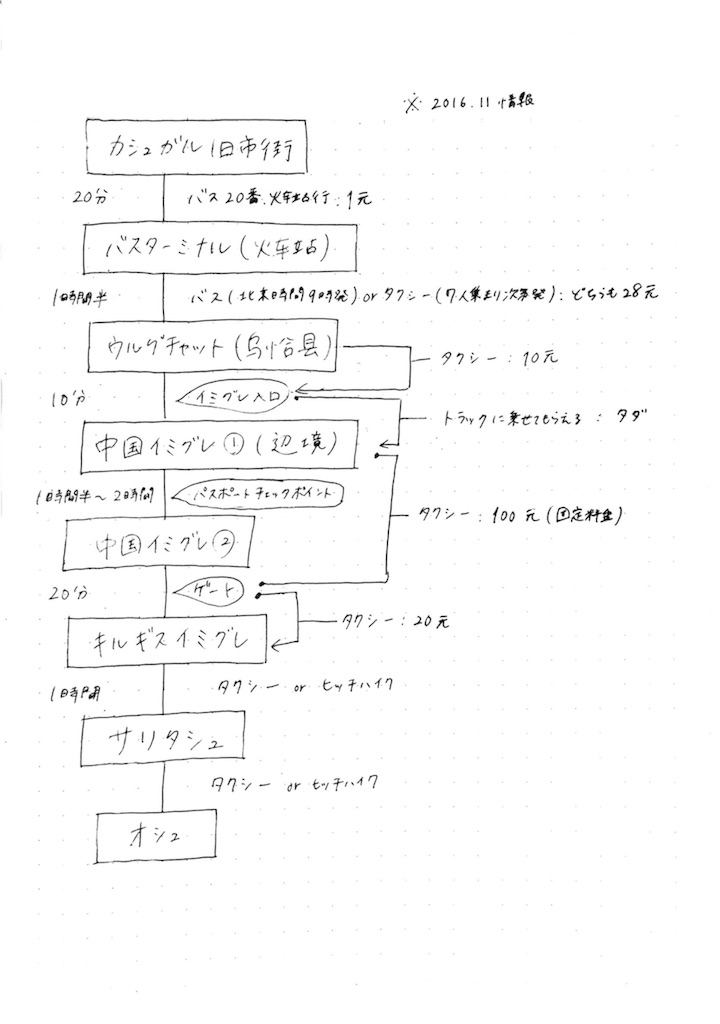 ※ 2016.11 情報
カシュガル旧市街
20分
バス20番.火车站行:1元
バスターミナル(火车站)
1時間半
バス(北京時間9時発)orタクシー(7人集まり次第発):どちらも28元
ウルグチャット(乌恰县)
タクシー:10元
10分
イミグレ入口
トラックに乗せてもらえる:タダ
中国イミグレ①(辺境)
1時間半〜2時間
パスポートチェックポイント
タクシー:100元(固定料金)
中国イミグレ②
20分
ゲート
タクシー:20元
キルギスイミグレ
1時間
タクシー or ヒッチハイク
サリタシュ
タクシー or ヒッチハイク
オシュ